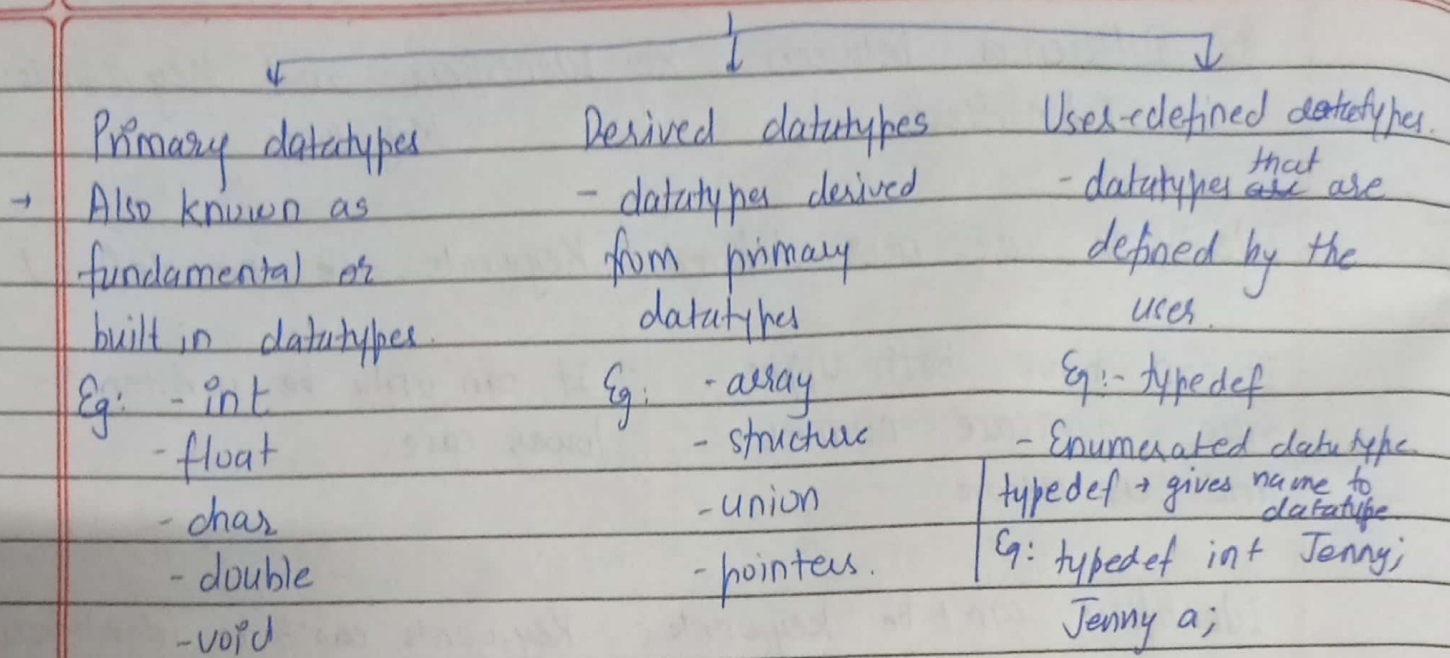 Primary datatypes
→ Also known as
fundamental or
built in datatypes.
Eg: - int
- float
- char
- double
- void
Derived datatypes
- datatypes derived
from primary
datatypes
Eg: - array
- structure
- union
- pointers.
User-defined datatypes.
- datatypes that are
defined by the
user.
Eg:- typedef
- Enumerated datatype.
typedef → gives name to
datatype
Eg: typedef int Jenny;
Jenny a;